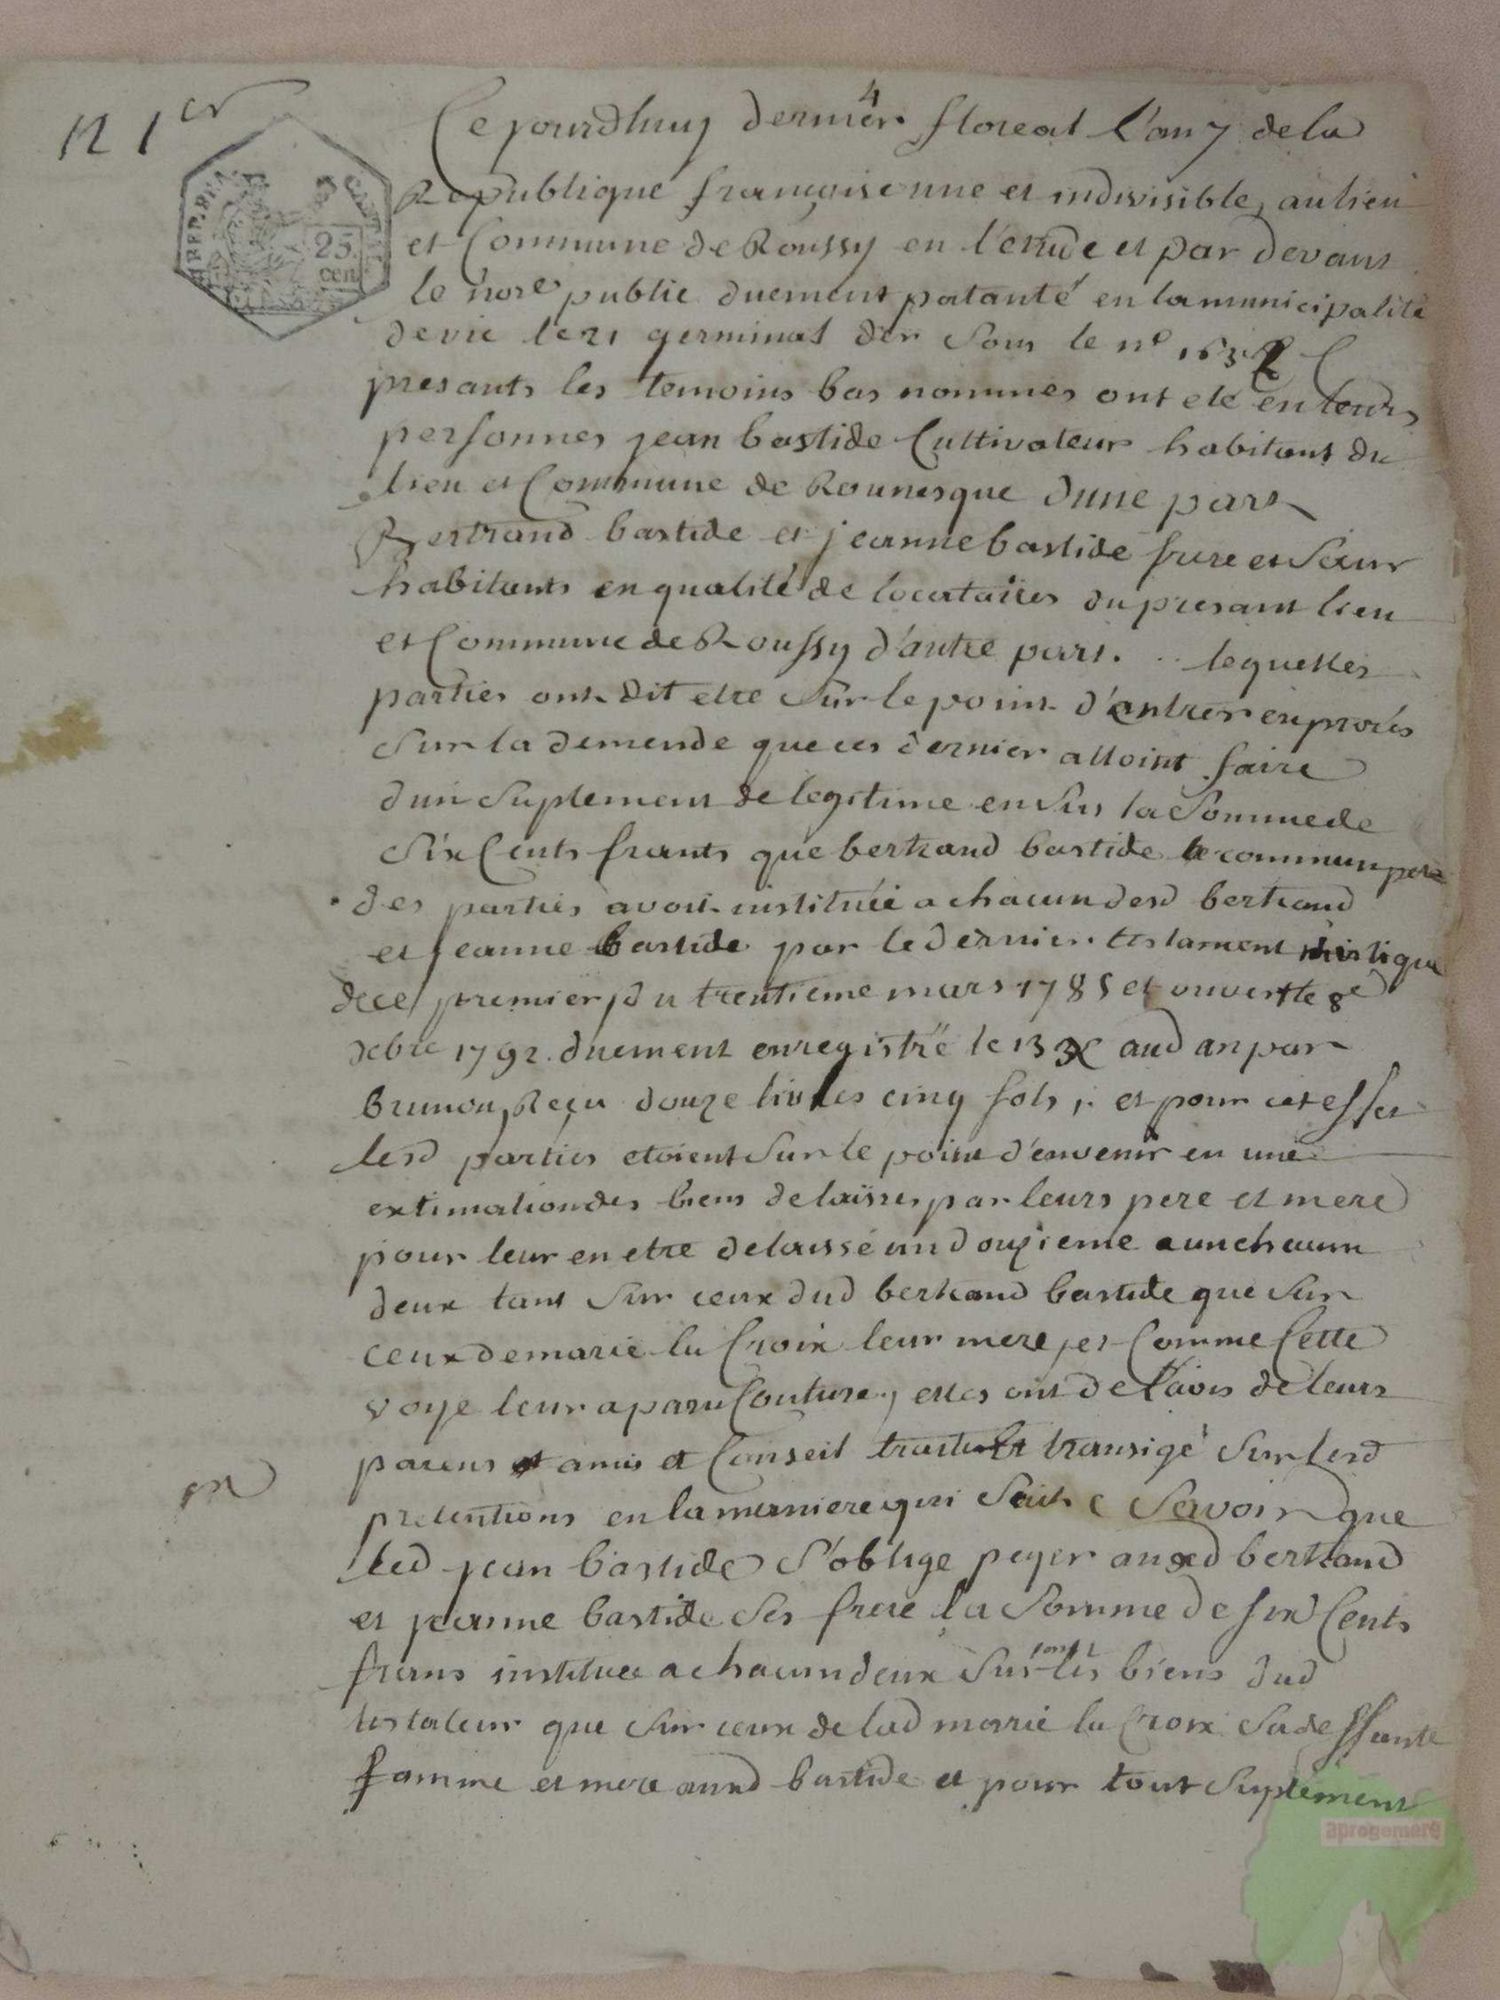 N 1er
REP. FRA
25.
cen
4
Cejourdhuy dernier floreal l'an 7 de la
Republique françoise une et indivisible, au lieu
et Commune de Roussy en l'etude et par devant
le nore public duement patanté en la municipalité
de vic le 21 germinal der sous le no
presants les temoins bas nommés ont eté en leurs
personnes jean bastide Cultivateur habitant du
lieu et Commune de Rounesque dune part
Bertrand bastide et jeanne bastide frere et Sœur
habitants en qualité de locataires du presant lieu
et Commune de Roussy d'autre part. .. lequelles
parties ont dit etre Sur le point d'entrer en procés
Sur la demende que ces dernier alloint faire
dun Suplement de legitime en Sus la Somme de
Six Cents frants que bertrand bastide le commun pere
des parties avoit instituée a chacun desd bertrand
et jeanne bastide par le dernier testament mistique
de ce premier du trentieme mars 1785 et ouvert le 8e
xbre 1792. duement enregistré le 13 aud an par
Brunon, Reçu douze livres cinq sols, et pour cet effet
lesd parties etoient Sur le point d'envenir en une
extimation des biens delaisses par leurs pere et mere
pour leur en etre delaissé un douzieme a un chacun
deux tant Sur ceux dud bertrand bastide que Sur
ceux de marie la Croix leur mere, et Comme Cette
voye leur a paru Couture, elles ont de l'avis de leurs
parens et amis et Conseil traité et transigé Sur lesd
pretentions en la maniere qui Suit Savoir que
led jean bastide S'oblige peyer auxd bertrand
et jeanne bastide Ses frere la Somme de six Cents
frans instituee a chacun deux Sur tant les biens dud
testateur que Sur ceux de lad marie la Croix Sa deffunte
famme et mere auxd bastide et pour tout Suplement
apregemere